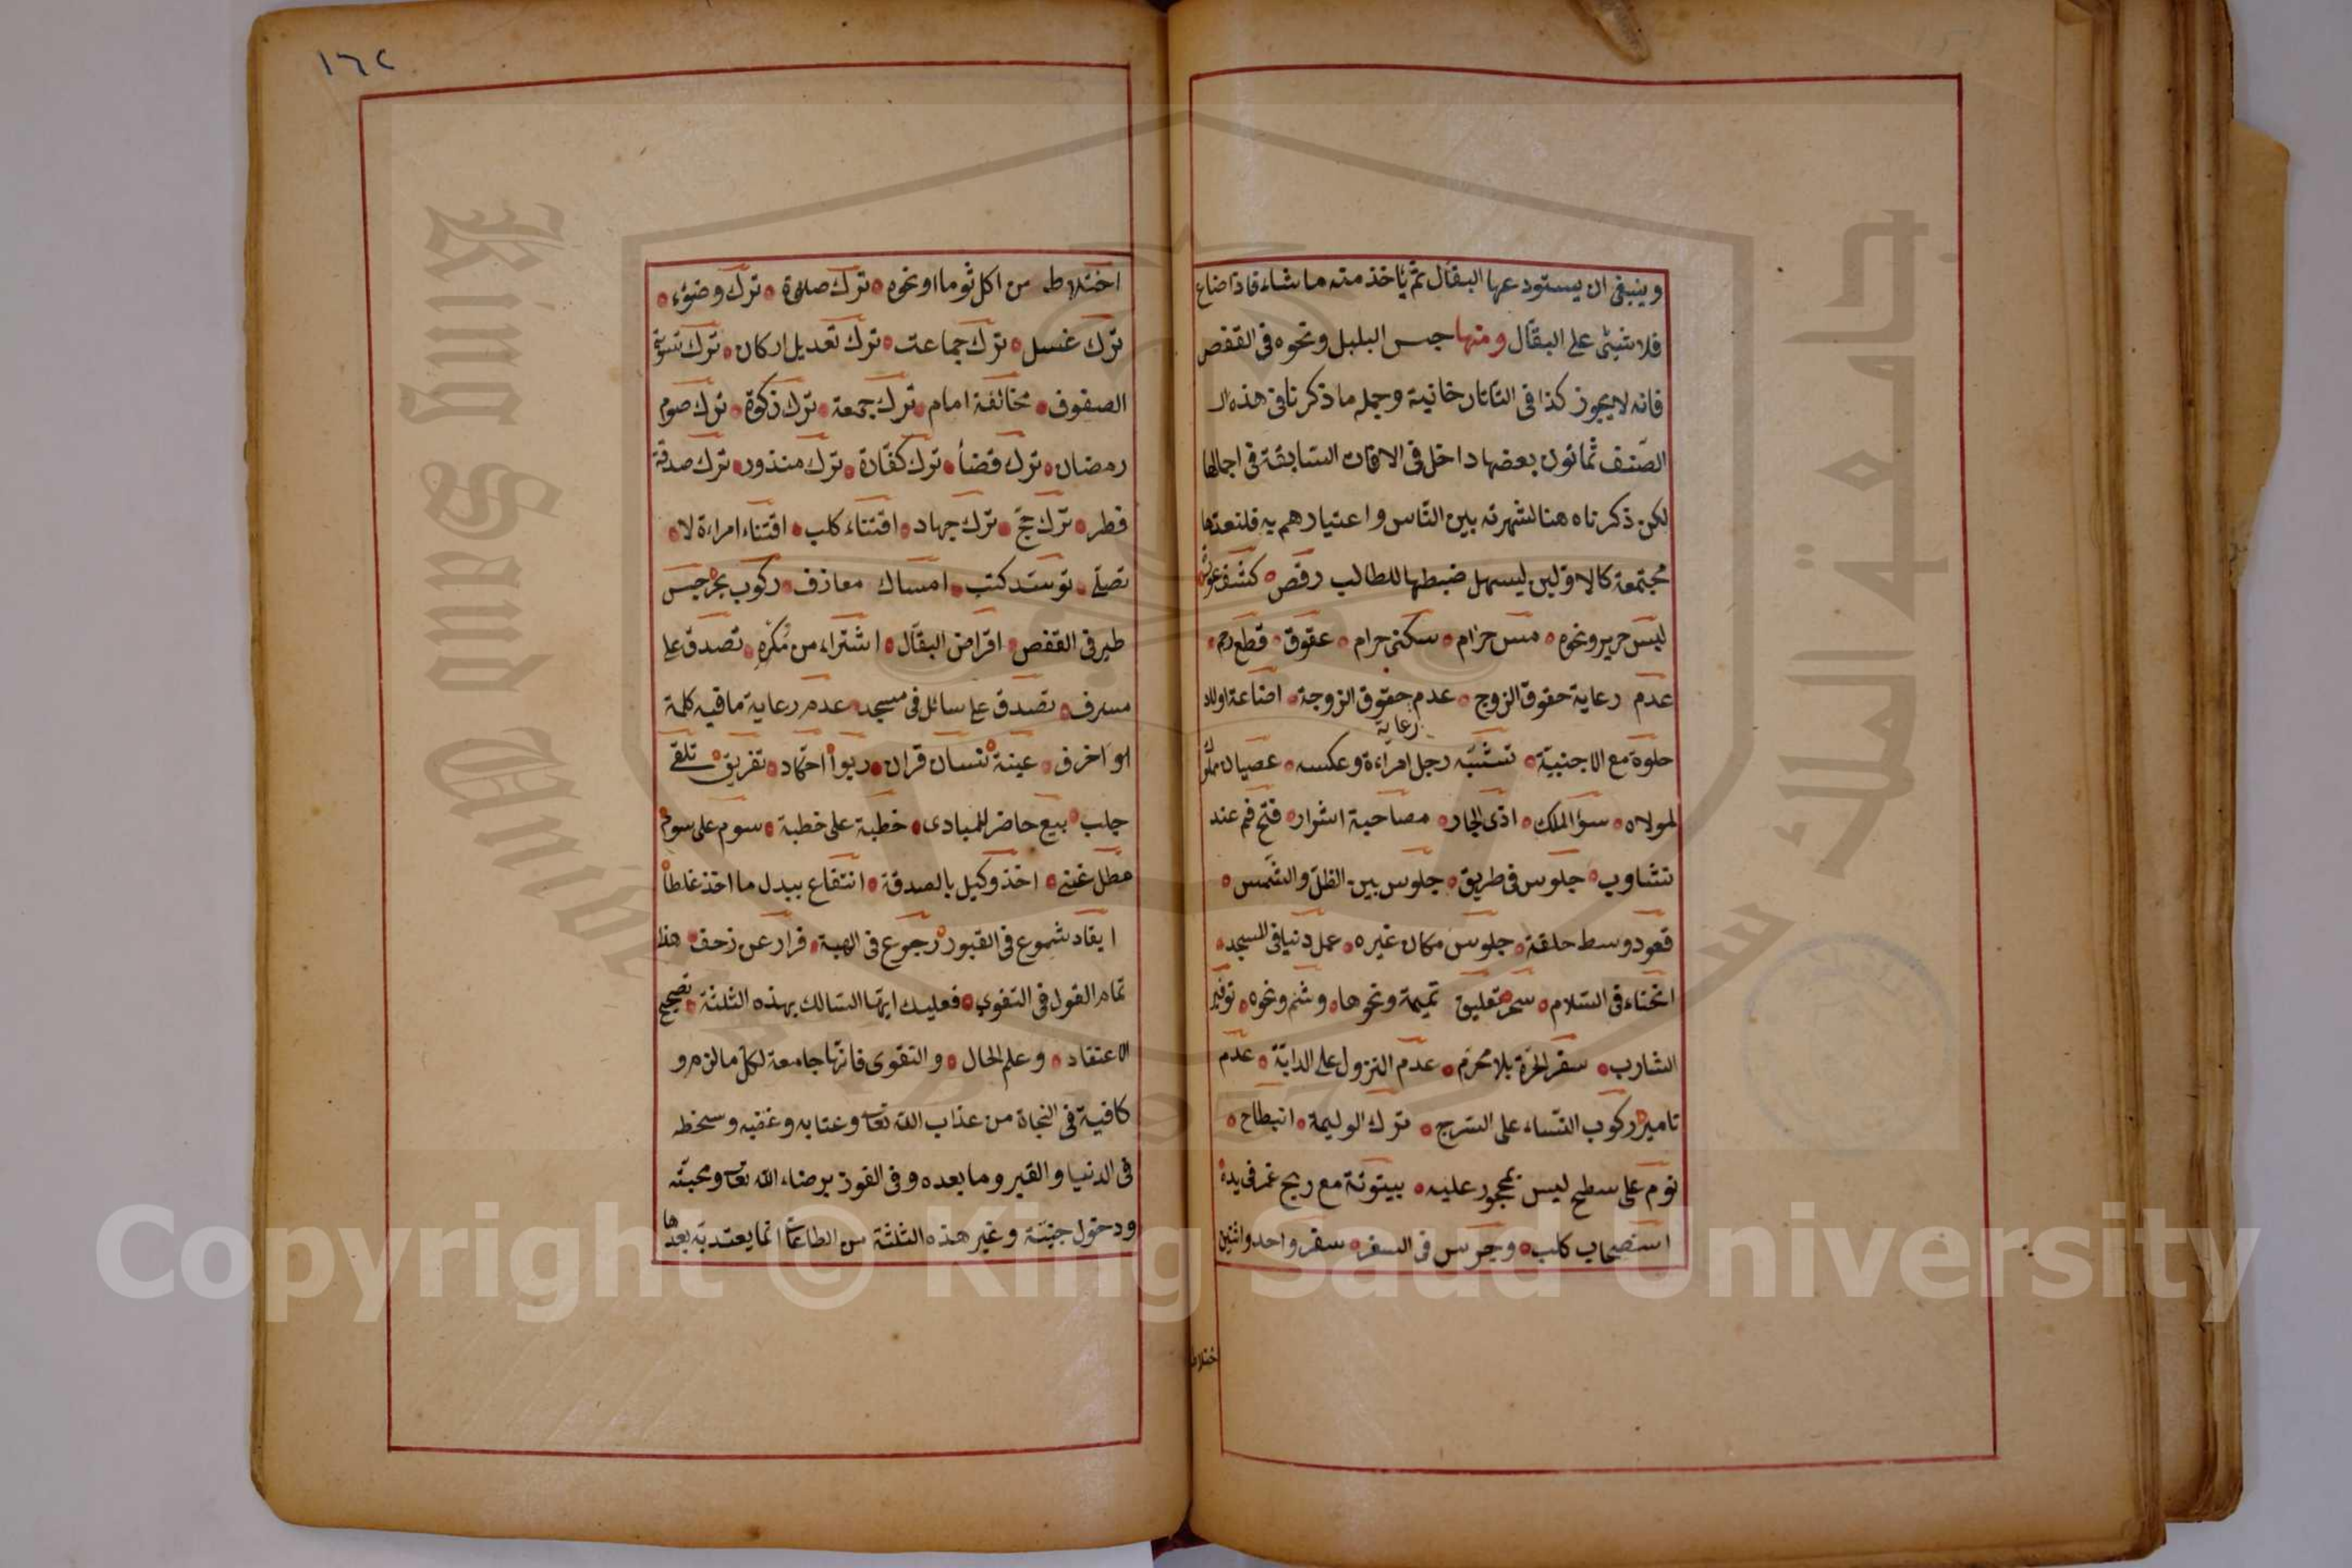 وينبغى ان يستودعها البقال ثم يأخذ منه ما شاء فاذا ضاع
فلا شيئ على البقال ومنها حبس البلبل ونحوه فى القفص
فانه لا يجوز كذا فى التاتارخانية وجمله ما ذكرنا فى هذه الـ
الصنف ثمانون بعضها داخل فى الافات السابقة فى اجمالها
لكن ذكرناه هنا لشهرته بين الناس واعتيادهم به فلنعدها
مجتمعة كالاولين ليسهل ضبطها للطالب رقص كشف عورة
لبس حرير ونحوه مس حرام سكنى حرام عقوق قطع رحم
عدم رعاية حقوق الزوج عدم حقوق الزوجة اضاعة اولاد
رعاية
خلوة مع الاجنبية تشبه رجل امراءة وعكسه عصيان مملوك
لمولاه سوء الملك اذى الجار مصاحبة اشرار فتح فم عند
تثاوب جلوس فى طريق جلوس بين الظل والشمس
قعود وسط حلقة جلوس مكان غيره عمل دنيا فى المسجد
انحناء فى السلام سحر تعليق تميمة ونحوها وشم ونحوه توفير
الشارب سفر الحرة بلا محرم عدم النزول على الدابة عدم
تامير ركوب النساء على السرج ترك الوليمة انبطاح
نوم على سطح ليس بمحجور عليه بيتوتة مع ريح غمر فى يده
استصحاب كلب وجرس فى السفر سفر واحد واثنين
ختلاط
١٦٢
اختلاط من اكل ثوما او نحوه ترك صلوة ترك وضوء
ترك غسل ترك جماعت ترك تعديل اركان ترك تسوية
الصفوف مخالفة امام ترك جمعة ترك زكوة ترك صوم
رمضان ترك قضأ ترك كفارة ترك منذور ترك صدقة
فطر ترك حج ترك جهاد اقتناء كلب اقتناء امراءة لا
تصلى توسد كتب امساك معازف ركوب بحر حبس
طير فى القفص اقراض البقال اشتراء من مكره تصدق على
مسرف تصدق على سائل فى مسجد عدم رعاية ما فيه كلمة
او اخرف عينة نسان قران ربوا احتكاد تفريق تلقى
جلب بيع حاضر للمبادى خطبة على خطبة سوم على سوم
مطل غنى اخذ وكيل بالصدقة انتفاع ببدل ما اخذ غلطا
ايقاد شموع فى القبور رجوع فى الهبة فرار عن زحف هذا
تمام القول فى التقوى فعليك ايها السالك بهذه الثلثة تصحيح
الاعتقاد وعلم الحال والتقوى فانها جامعة لكل ما لزم و
كافية فى النجاة من عذاب الله تعا وعتابه وغضبه وسخطه
فى الدنيا والقبر وما بعده وفى الفوز برضاء الله تعا ومحبته
ودخول جنته وغير هذه الثلثة من الطاعات انما يعتد به بعدها
Copyright © King Saud University
King Saud University
جامعة الملك سعود